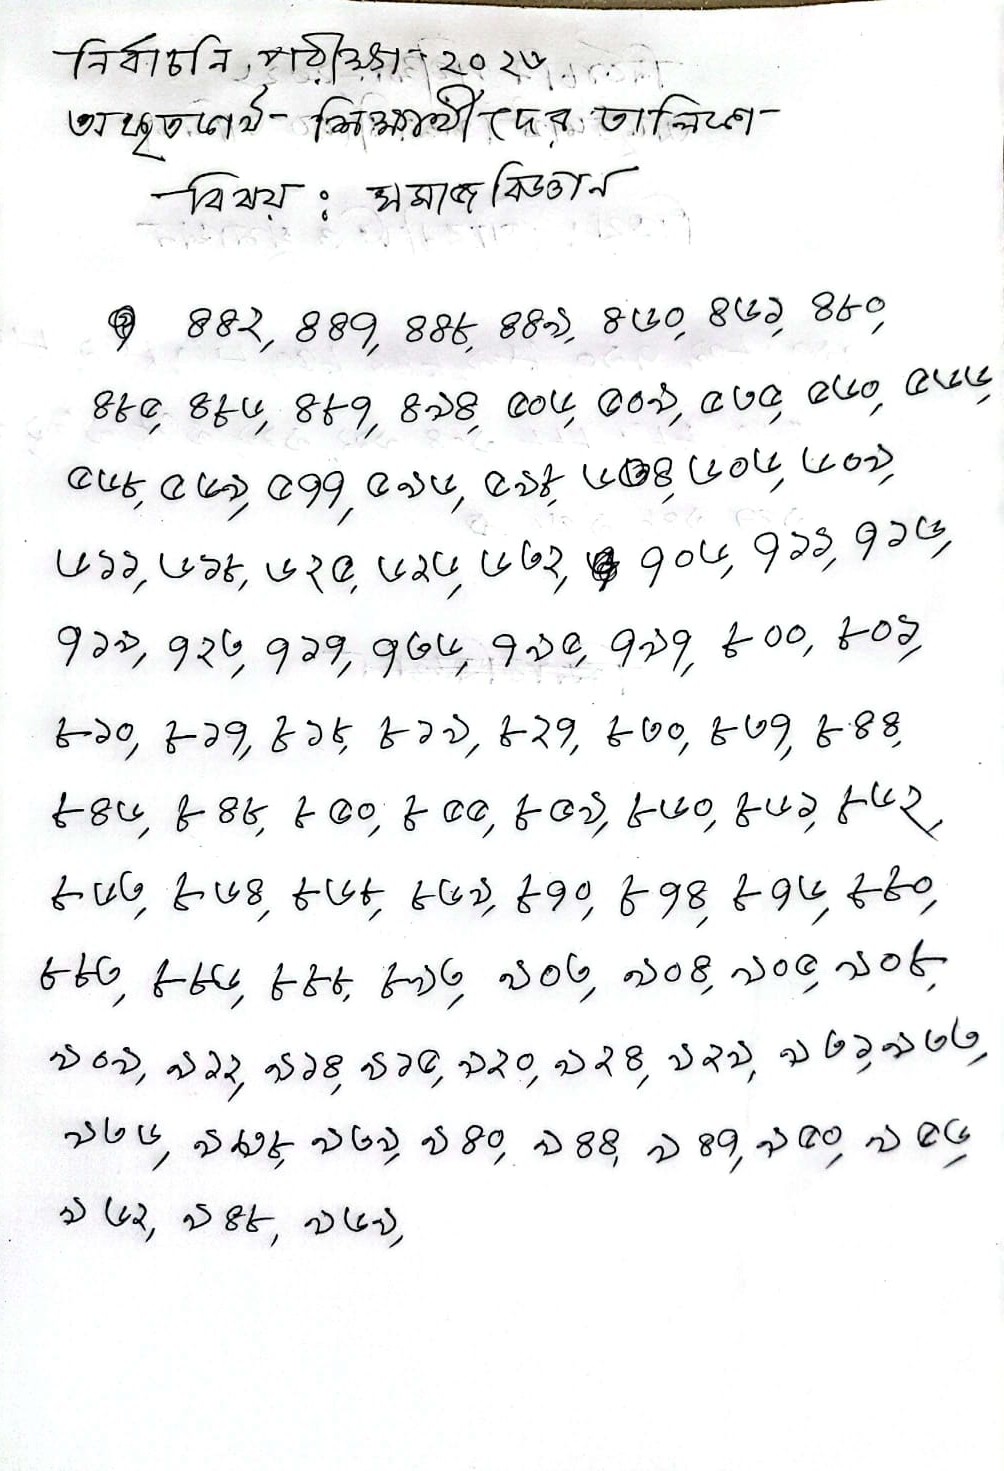 নির্বাচনি পরীক্ষা-২০২৩
অকৃতকার্য শিক্ষার্থীদের তালিকা
বিষয় : সমাজ বিজ্ঞান
৪৪২, ৪৪৭, ৪৪৮, ৪৪৯, ৪৬০, ৪৬১, ৪৮০,
৪৮৫, ৪৮৬, ৪৮৭, ৪৯৪, ৫০৬, ৫০৯, ৫৩৫, ৫৬০, ৫৬৬,
৫৬৮, ৫৬৯, ৫৭৭, ৫৯৬, ৫৯৮, ৬০৬, ৬০৯,
৬১১, ৬১৮, ৬২৫, ৬২৬, ৬৩২, ৭০৬, ৭১১, ৭১৬,
৭১৯, ৭২৩, ৭১৭, ৭৩৬, ৭৯৫, ৭৯৭, ৮০০, ৮০১,
৮১০, ৮১৭, ৮১৮, ৮১৯, ৮২৭, ৮৩০, ৮৩৭, ৮৪৪,
৮৪৬, ৮৪৮, ৮৫০, ৮৫৫, ৮৫৯, ৮৬০, ৮৬১, ৮৬২,
৮৬৩, ৮৬৪, ৮৬৮, ৮৬৯, ৮৭০, ৮৭৪, ৮৭৬, ৮৮০,
৮৮৩, ৮৮৬, ৮৮৮, ৮৯৩, ৯০৩, ৯০৪, ৯০৫, ৯০৮,
৯০৯, ৯১২, ৯১৪, ৯১৫, ৯২০, ৯২৪, ৯২৯, ৯৩১, ৯৩৩,
৯৩৬, ৯৩৯, ৯৪০, ৯৪৪, ৯৪৭, ৯৫০, ৯৫৬,
৯৬২, ৯৪৮, ৯৬৯,